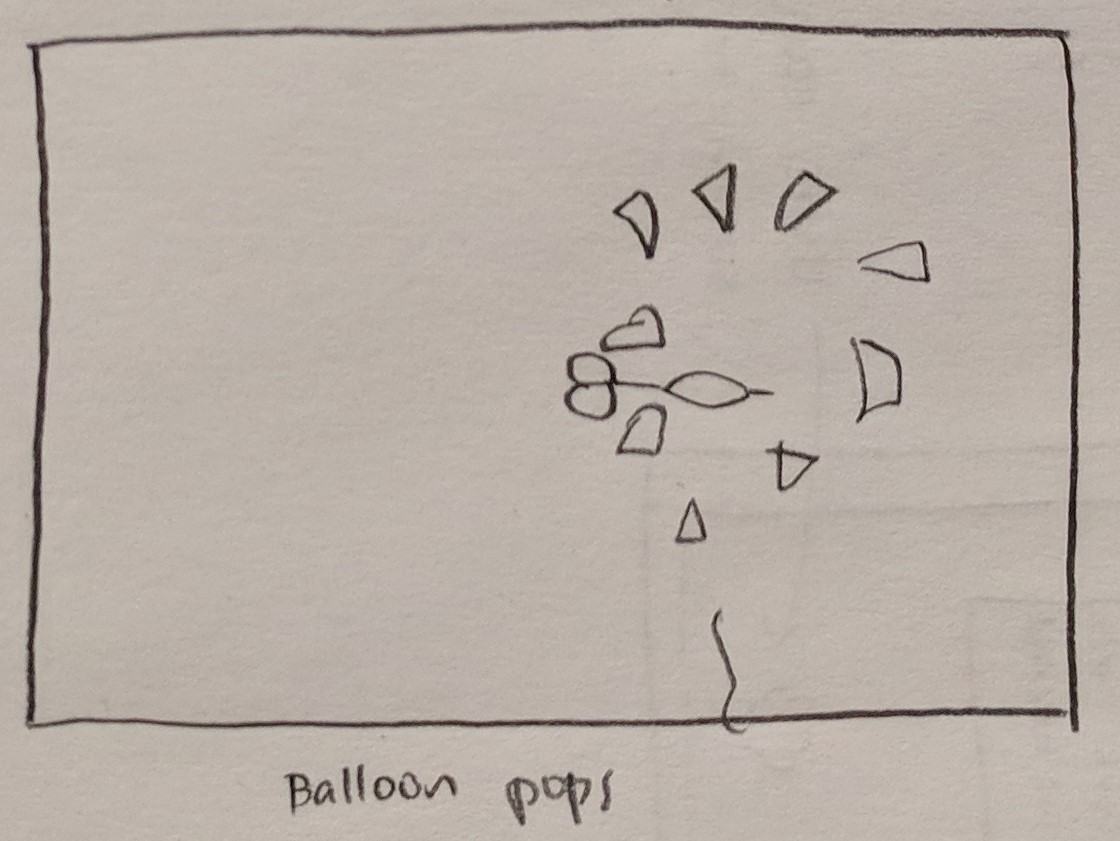 Balloon pops